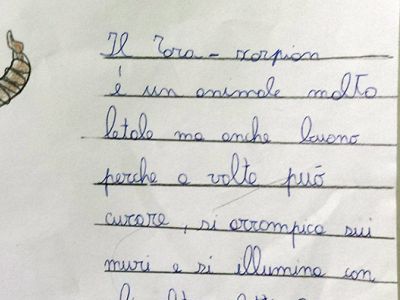 Il Tora-scorpion
é un animale molto
letale ma anche buono
perche a volte può
curare, si arrampica sui
muri e si illumina con